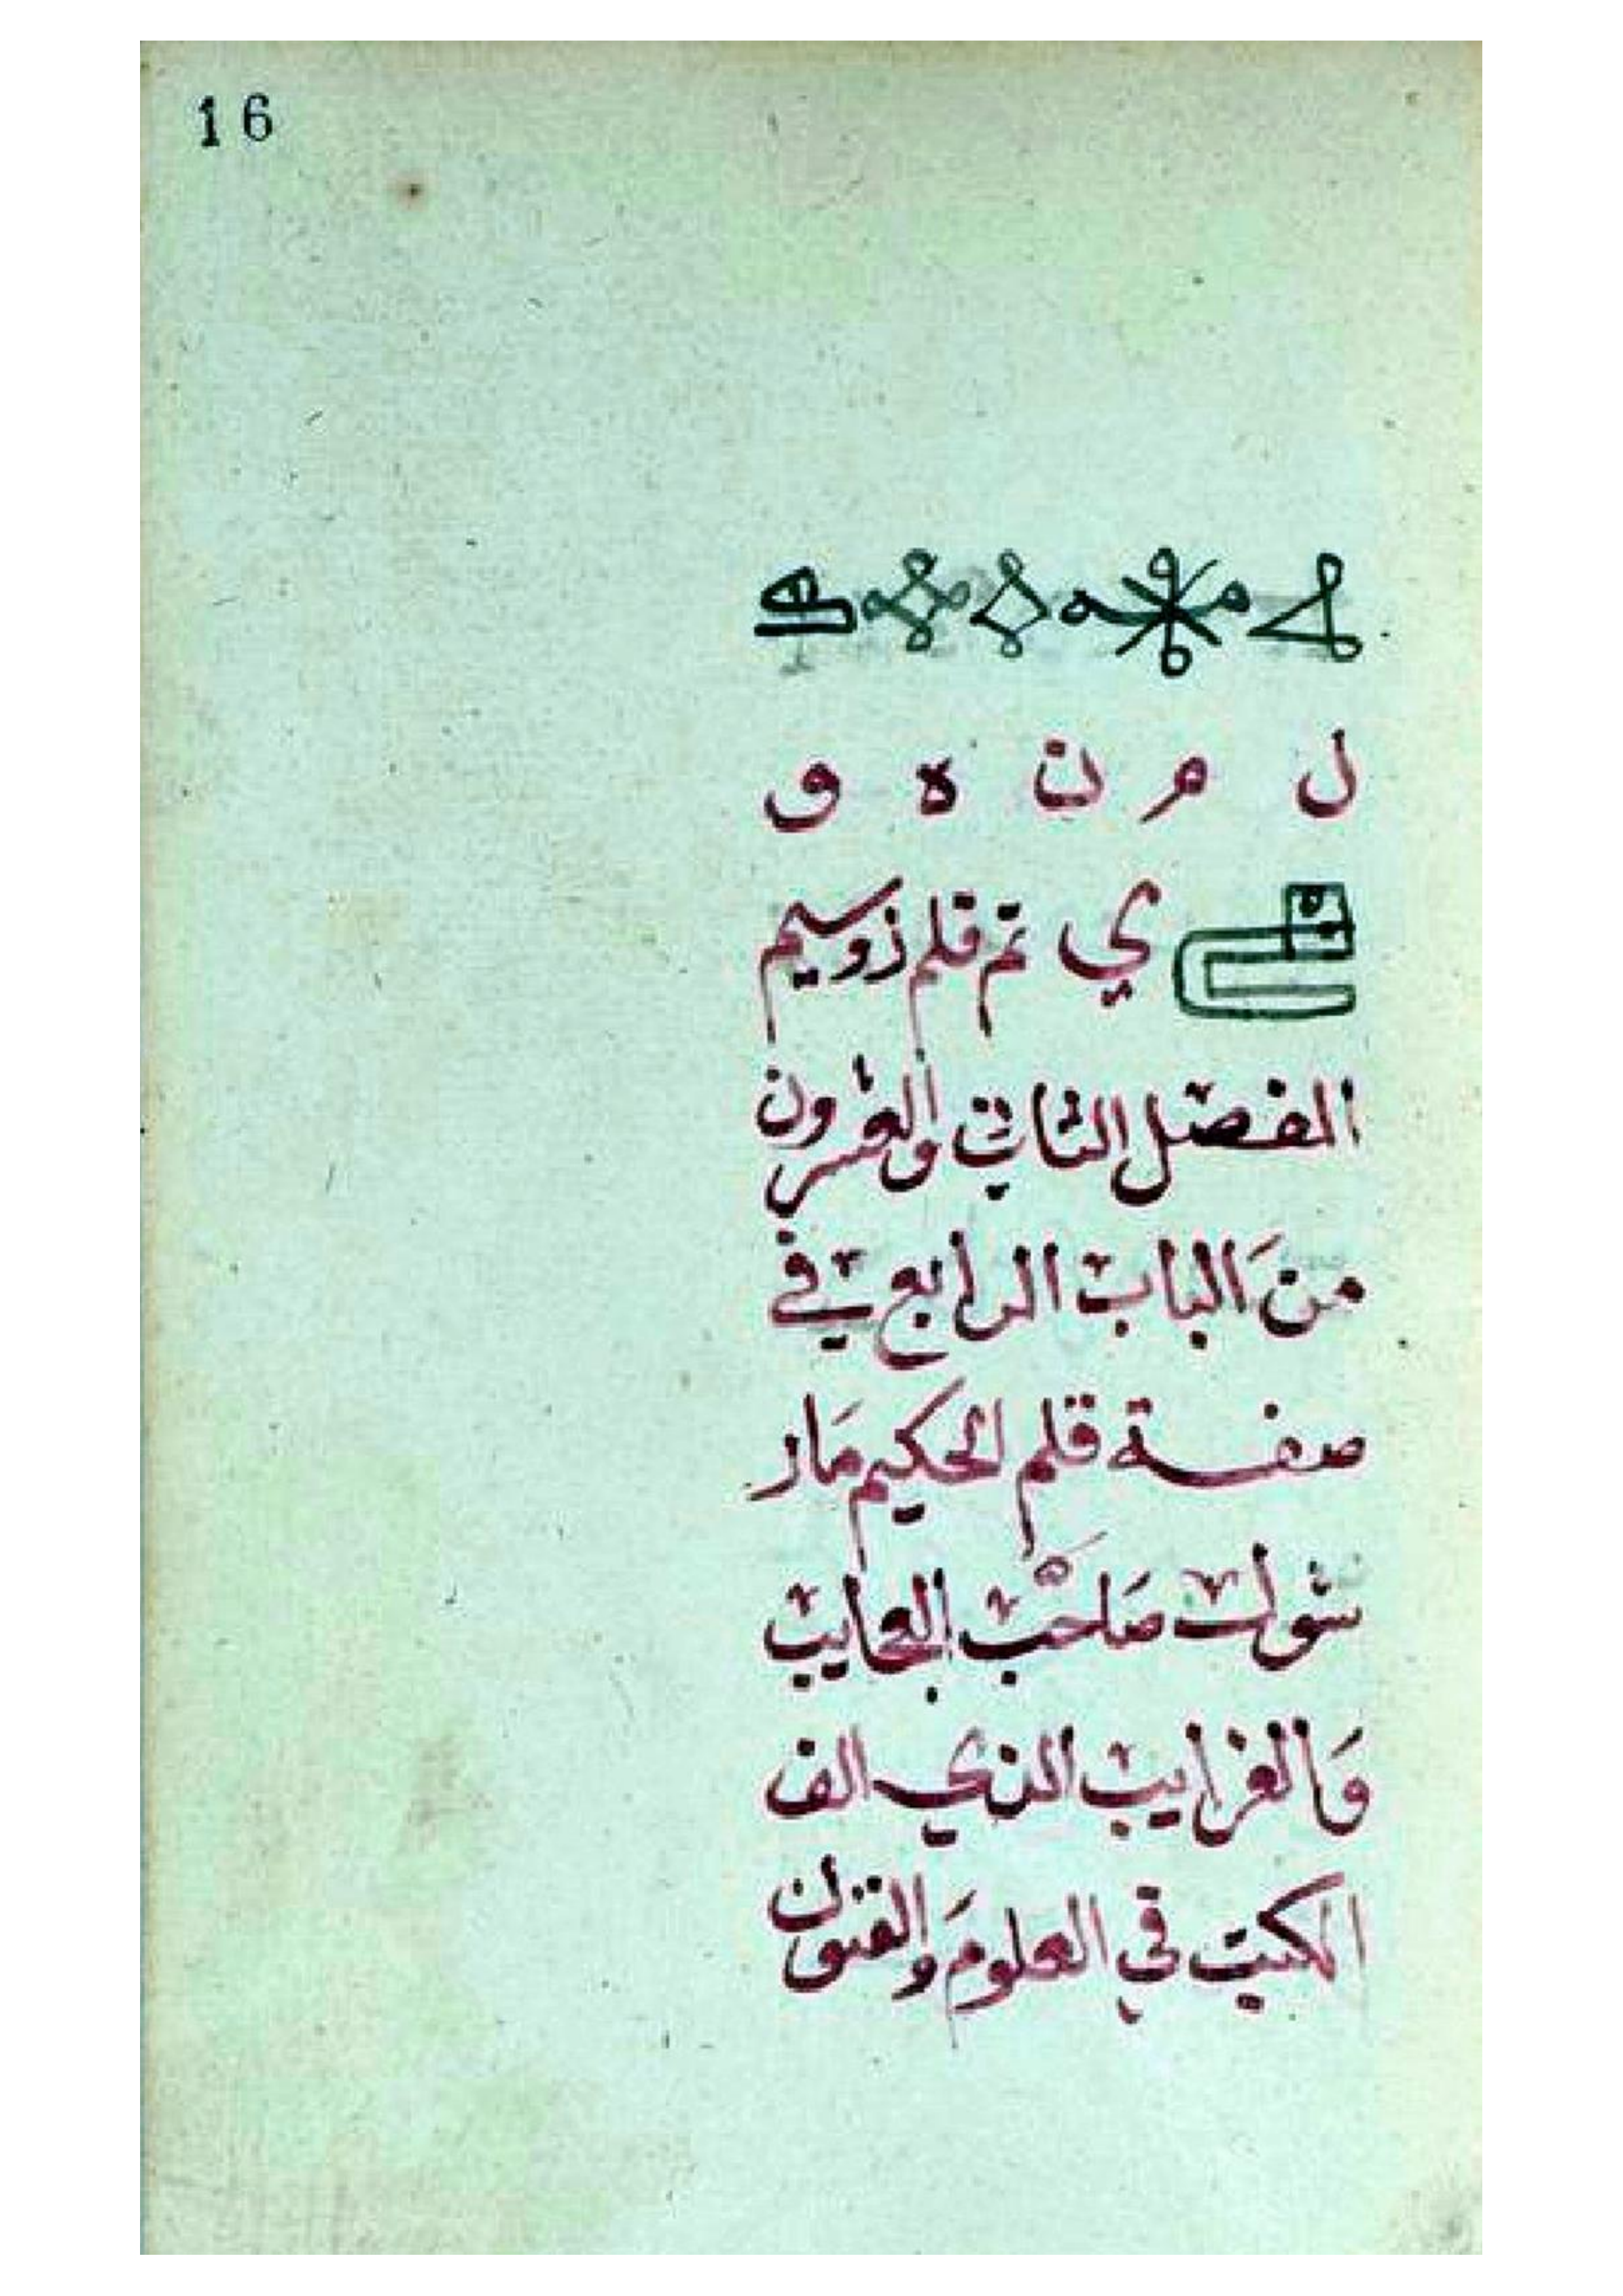 16
ل م ن ه و
ي تم قلم زوسيم
الفصل الثاني والعشرون
من الباب الرابع في
صفة قلم الحكيم مار
شول صاحب العجايب
والغرايب الذي الف
الكتب في العلوم والفنون